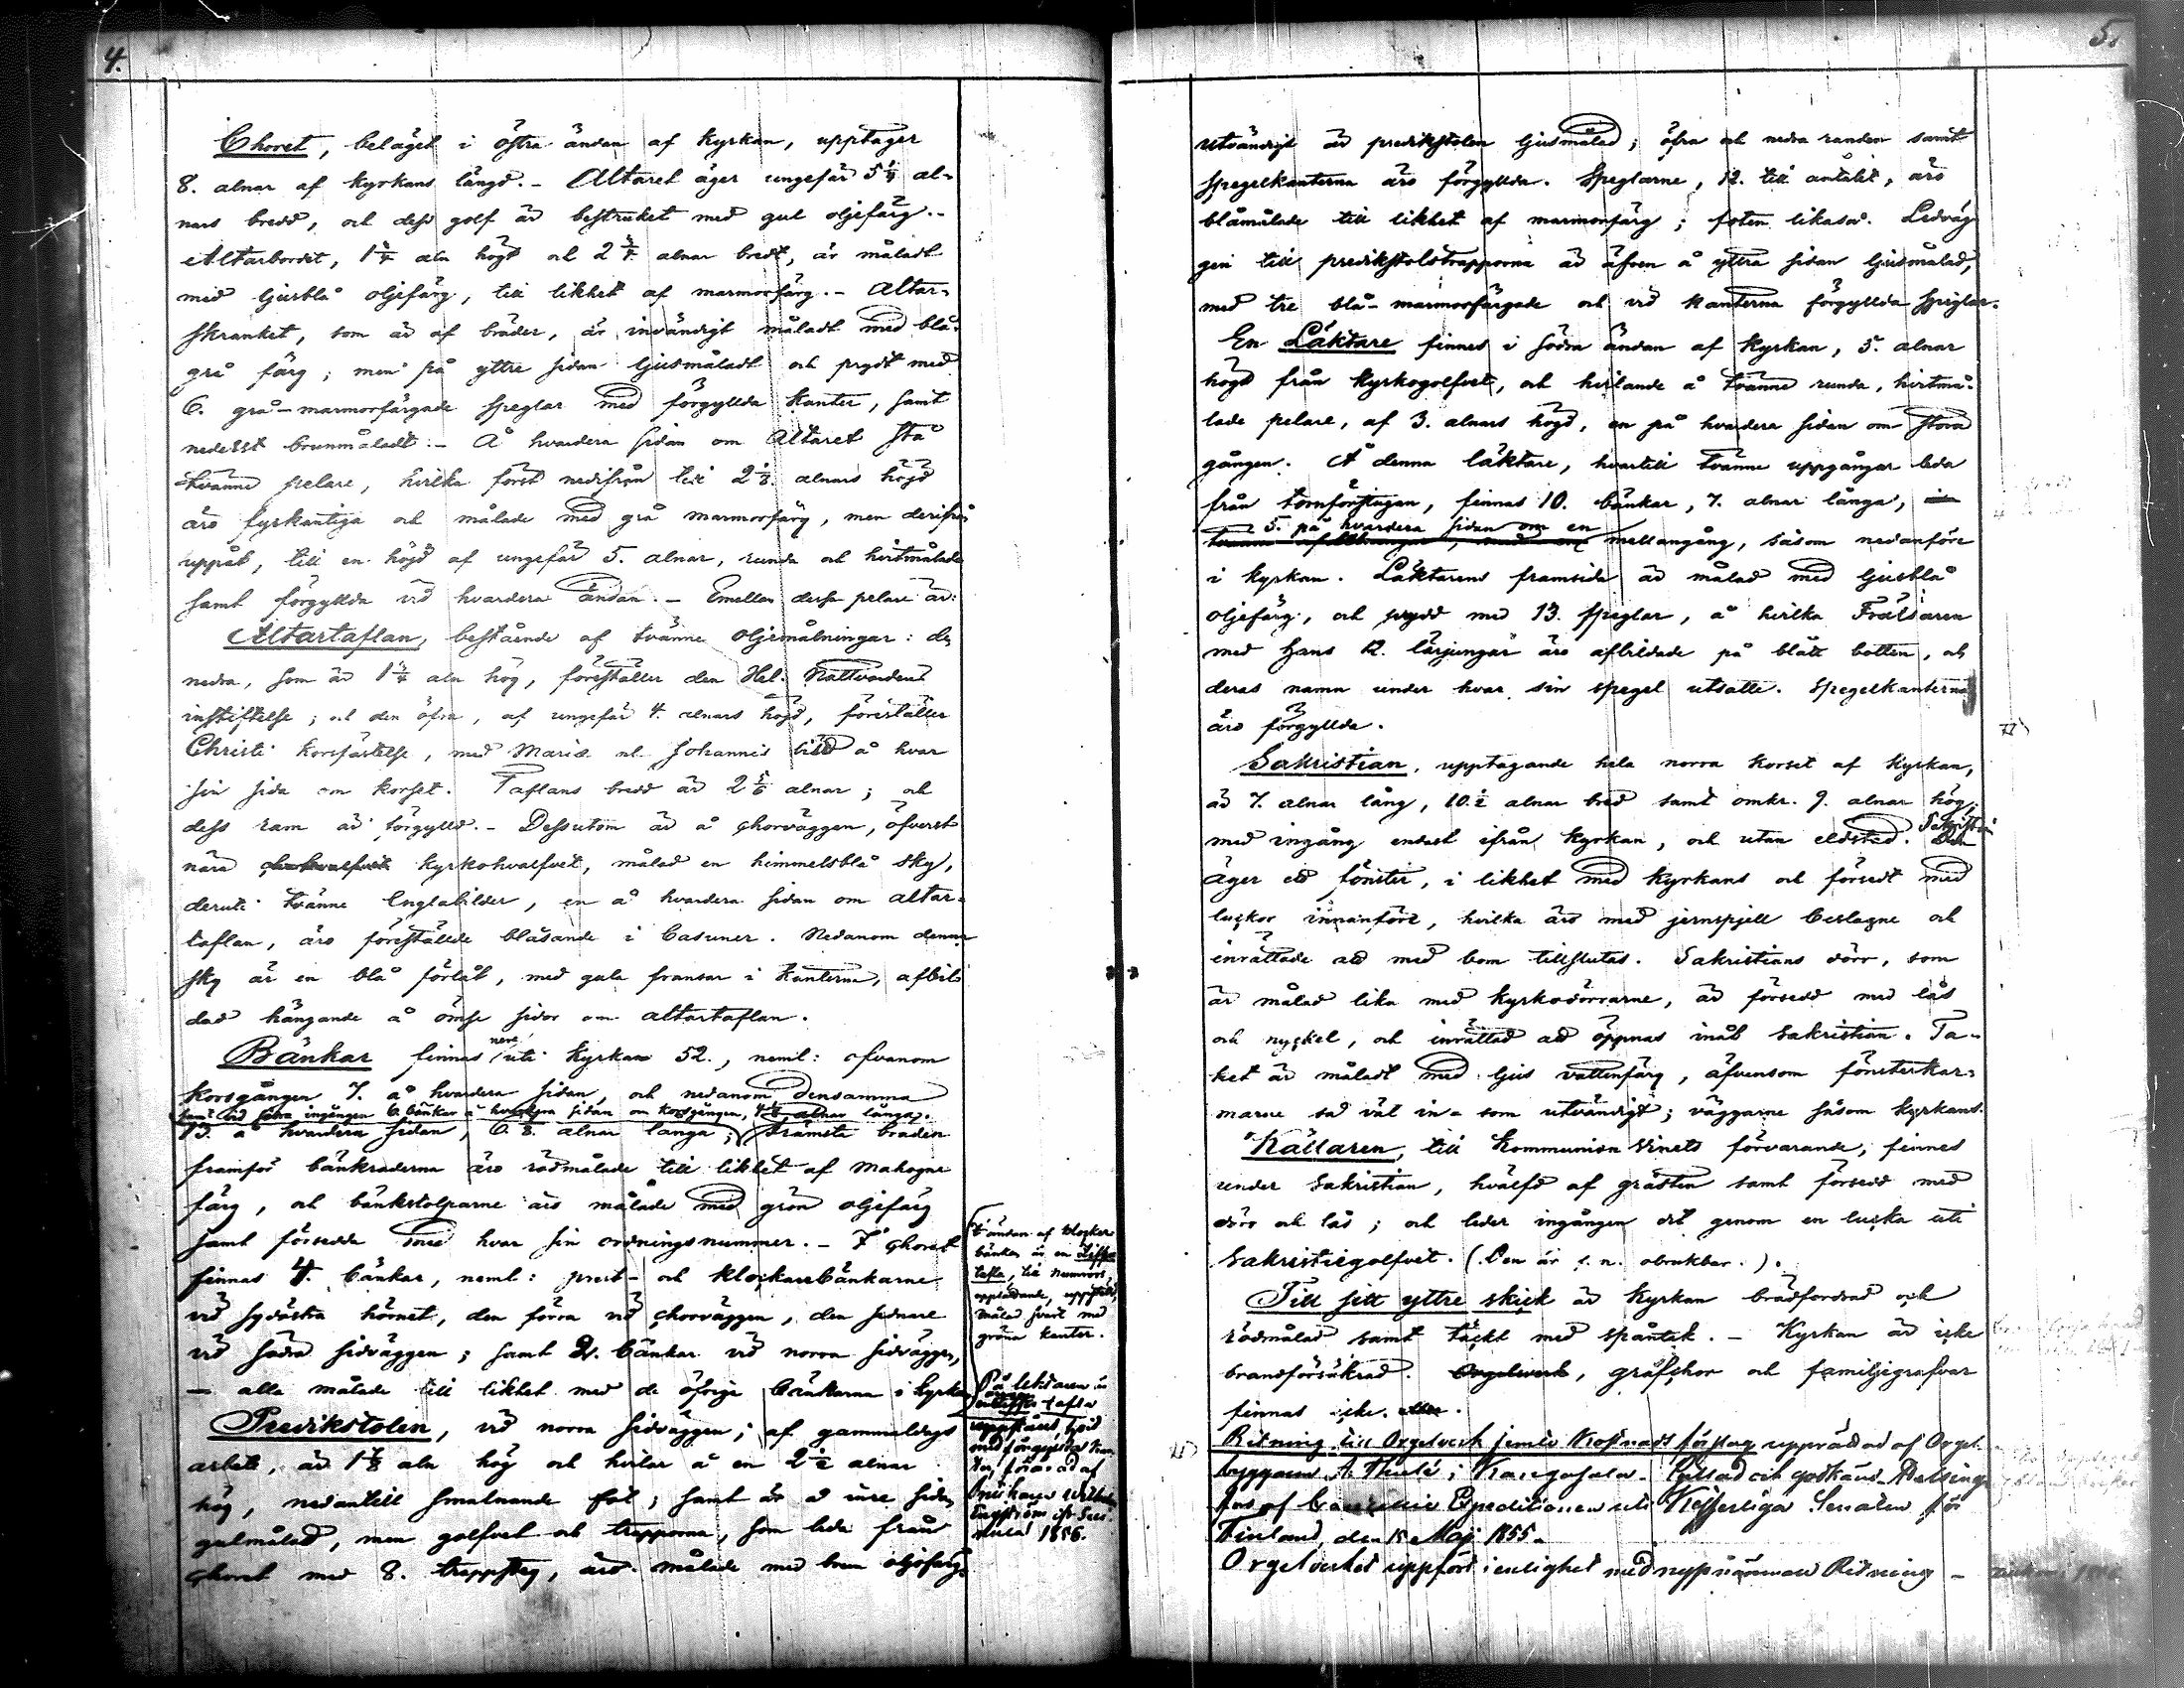 4.
Choret, beläget i östra ändan af Kyrkan, upptager
8. alnar af kyrkans längd. - Altaret äger ungefär 5 1/4 al-
nars bredd, och dess golf är bestruket med gul oljefärg. -
Altarbordet, 1 1/4 aln högt och 2 3/4 alnar bredt, är måladt
med ljusblå oljefärg, till likhet af marmorfärg. - Altar-
skranket, som är af bräder, är invändigt måladt med blå-
grå färg; men på yttre sidan ljusmåladt och prydt med
6. grå-marmorfärgade speglar med förgyllda kanter, samt
nederst brunmåladt. - Å hvardera sidan om Altaret stå
tvänne pelare, hvilka först nedifrån till 2 1/8 alnars höjd
äro fyrkantiga och målade med grå marmorfärg, men derifrån
uppåt, till en höjd af ungefär 5. alnar, runda och hvitmålade
samt förgyllda vid hvardera ändan. - Emellan dessa pelare är:
Altartaflan, bestående af tvänne oljemålningar: de
nedra, som är 1 1/4 aln hög, föreställer den Hel. Nattvardens
instiftelse; och den öfra, af ungefär 4. alnars höjd, föreställer
Christi korsfästelse, med Mariæ och Johannis bild å hvar
sin sida om korset. Taflans bredd är 2 1/6 alnar; och
dess ram är förgylld. - Dessutom är å chorväggen, öfverst
nära kyrkohvalfvet, målad en himmelsblå sky,
deruti tvänne Englabilder, en å hvardera sidan om altar-
taflan, äro föreställde blåsande i Basuner. Nedanom denna
sky är en blå förlåt, med gula fransar i kanterna, afbil-
dad hängande å ömse sidor om altartaflan.
Bänkar finnas nere uti Kyrkan 52., neml: ofvanom
korsgången 7. å hvardera sidan, och nedanom densamma
samt vid södra ingången 6 bänkar å hvardera sidan om korsgången, 4 1/2 alnar långa.
13. å hvardera sidan, 6.8. alnar långa; främsta bräden
framför bänkraderna äro rödmålade till likhet af Mahogne
färg, och bänkstolparne äro målade med grön oljefärg
samt försedda med hvar sin ordningsnummer. - I Choret
finnas 4. bänkar, neml: prest- och klockarebänkarne
vid sydöstra hörnet, den förra vid chorväggen, den sednare
vid södra sidväggen; samt 2. bänkar vid norra sidväggen,
- alla målade till likhet med de öfrige bänkarna i kyrkan
Predikstolen, vid norra sidväggen, af gammaldags
arbete, är 1 7/8 aln hög och hvilar å en 2 1/2 alnar
hög, nedantill smalnande fot; samt är å inre sidan
gulmålad, men golfvet och trapporna, som leda från
choret med 8. trappsteg, äro målade med brun oljefärg.
I ändan af klockare
bänken är en Siffer
tafla, till numrors
upptagande, uppställd,
målad svart med
gröna kanter.
På läktaren är
tafla
med förgyllda kan
ter, föräradt af
Wilhelm
Engström
1856.
5.
utvändigt är predikstolen ljusmålad; öfra och nedra randen samt
spegelkanterna äro förgyllda. Speglarne, 12. till antalet, äro
blåmålade till likhet af marmorfärg; foten likaså. Ledväg-
gen till predikstolstrapporna är äfven å yttra sidan ljusmålad,
med tre blå-marmorfärgade och vid kanterna förgyllda speglar.
En Läktare finnes i södra ändan af Kyrkan, 5. alnar
högt från kyrkogolfvet, och hvilande å tvänne runda, hvitmå-
lade pelare, af 3. alnars höjd, en på hvardera sidan om stora
gången. Å denna läktare, hvartill tvänne uppgångar leda
från tornförstugan, finnas 10. bänkar, 7. alnar långa,
5. på hvardera sidan om en
mellangång, såsom nedanföre
i kyrkan. Läktarens framsida är målad med ljusblå
oljefärg, och prydd med 13. speglar, å hvilka Frälsaren
med Hans 12. lärjungar äro afbildade på blått botten, och
deras namn under hvar sin spegel utsatte. Spegelkanterna
äro förgyllda.
Sakristian, upptagande hela norra korset af kyrkan,
är 7. alnar lång, 10. 1/2 alnar bred samt omkr. 9. alnar hög,
med ingång endast ifrån kyrkan, och utan eldstad. Sakristian
äger ett fönster, i likhet med kyrkans och försedt med
luckor innanföre, hvilka äro med jernspjell beslagne och
inrättade att med bom tillslutas. Sakristians dörr, som
är målad lika med kyrkodörrarne, är försedd med lås
och nyckel, och inrättad att öppnas inåt sakristian. Ta-
ket är måladt med ljus vattenfärg, äfvensom fönsterkar-
marne så väl in- som utvändigt; väggarne såsom kyrkans.
Källaren, till Kommunion Vinets förvarande, finnes
under sakristian, hvälfd af gråsten samt försedd med
dörr och lås; och leder ingången dit genom en lucka uti
sakristiegolfvet. (Den är f.n. obrukbar.).
Till sitt yttre skick är Kyrkan brädfordrad och
rödmålad samt täckt med spåntak. - Kyrkan är icke
brandförsäkrad. Orgelverk, grafchor och familjegrafvar
finnas icke.
Ritning till Orgelverk jemte Kostnads förslag upprättad af Orgel-
byggaren A. Thulé i Kangasala. Gillad och godkänd. Helsing-
fors af Expeditionen uti Kejserliga Senaten för
Finland, den 15 Maj 1855.
Orgelverket uppfört i enlighet med nyssnämnde Ritning -